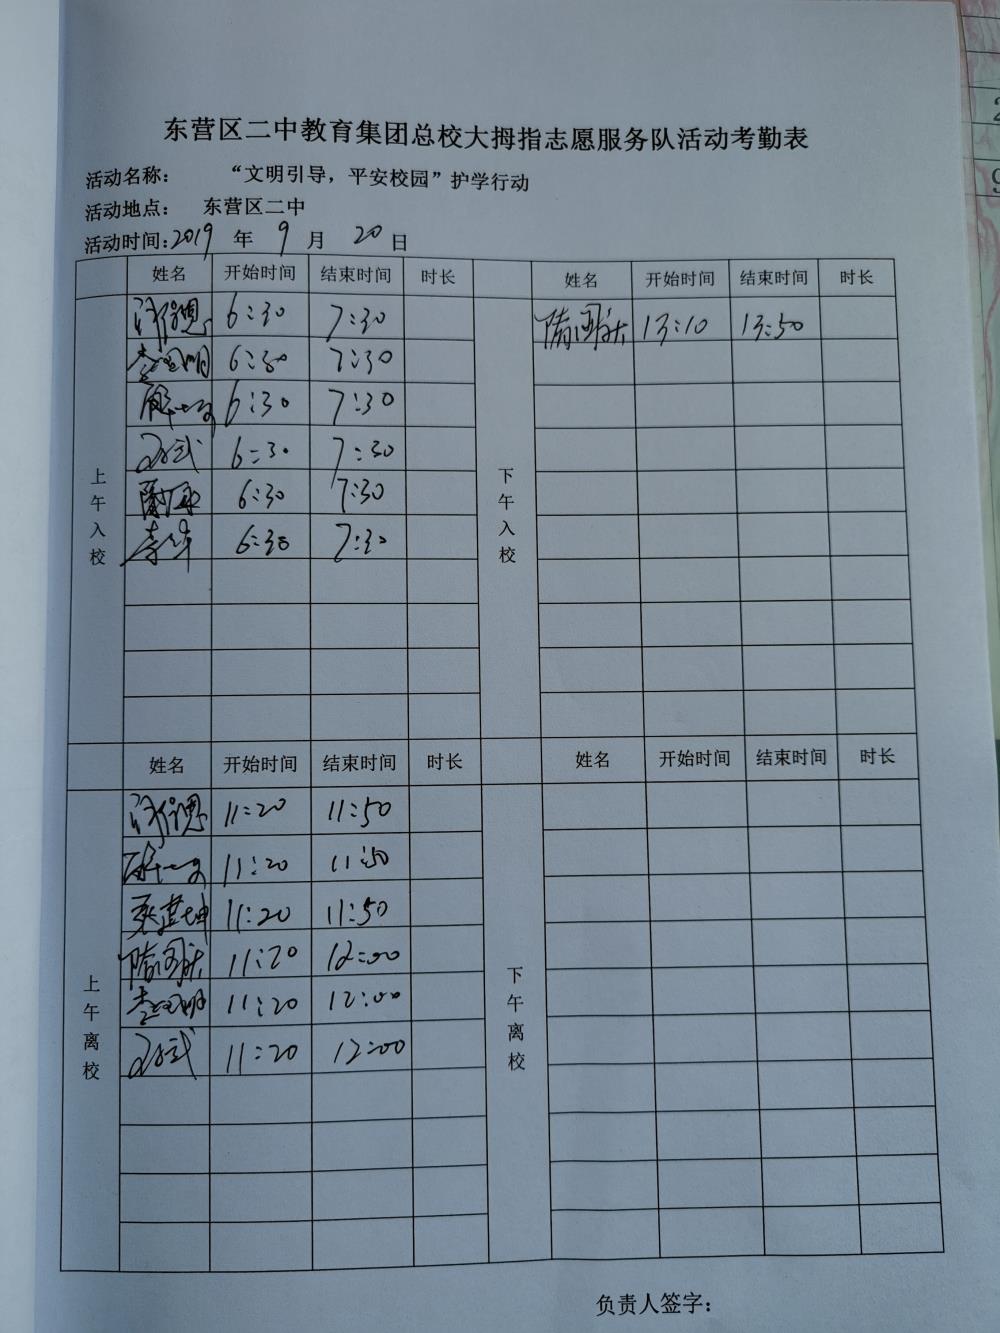 东营区二中教育集团总校大拇指志愿服务队活动考勤表
活动名称: “文明引导，平安校园”护学行动
活动地点: 东营区二中
活动时间:2019 年 9 月 20 日
姓名 开始时间 结束时间 时长 姓名 开始时间 结束时间 时长
上午入校
6:30 7:30
6:30 7:30
6:30 7:30
6:30 7:30
6:30 7:30
李华 6:30 7:30
下午入校
13:10 13:50
姓名 开始时间 结束时间 时长 姓名 开始时间 结束时间 时长
上午离校
11:20 11:50
11:20 11:50
11:20 11:50
11:20 12:00
11:20 12:00
11:20 12:00
下午离校
负责人签字: